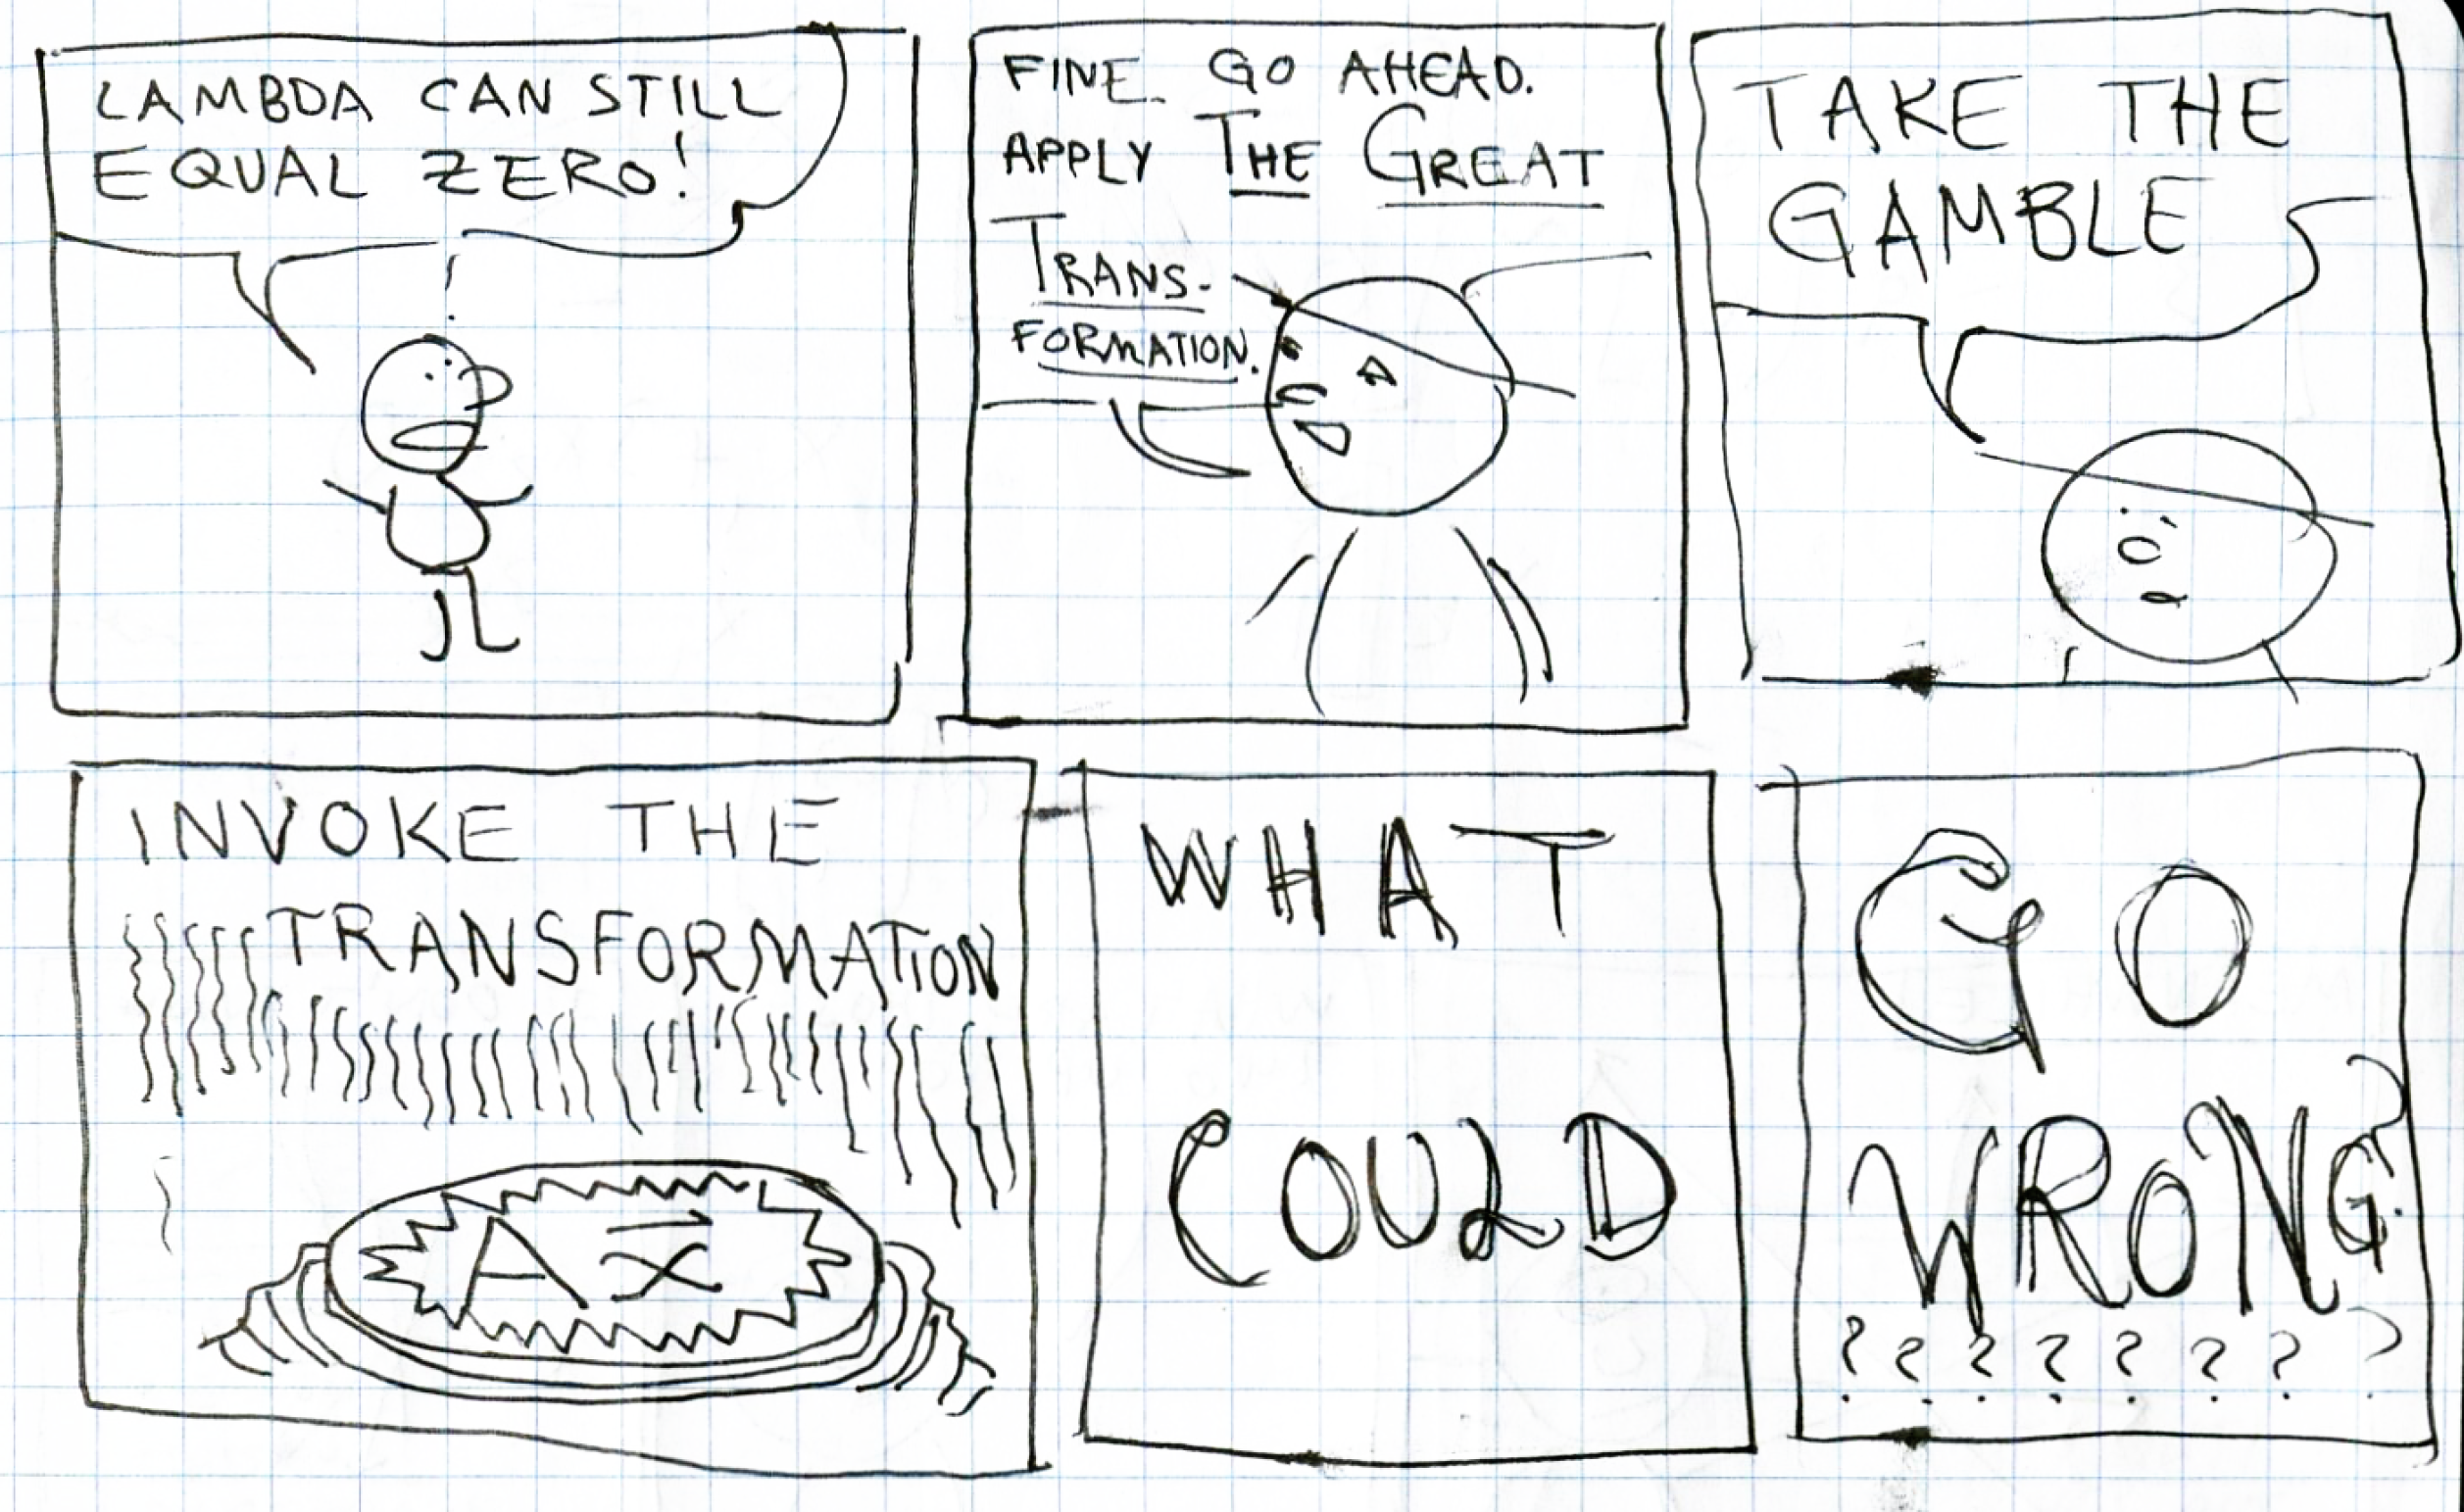 LAMBDA CAN STILL
EQUAL ZERO!
FINE. GO AHEAD.
APPLY THE GREAT
TRANS-
FORMATION.
TAKE THE
GAMBLE
INVOKE THE
TRANSFORMATION
Ax⃗
WHAT
COULD
GO
WRONG?
????????